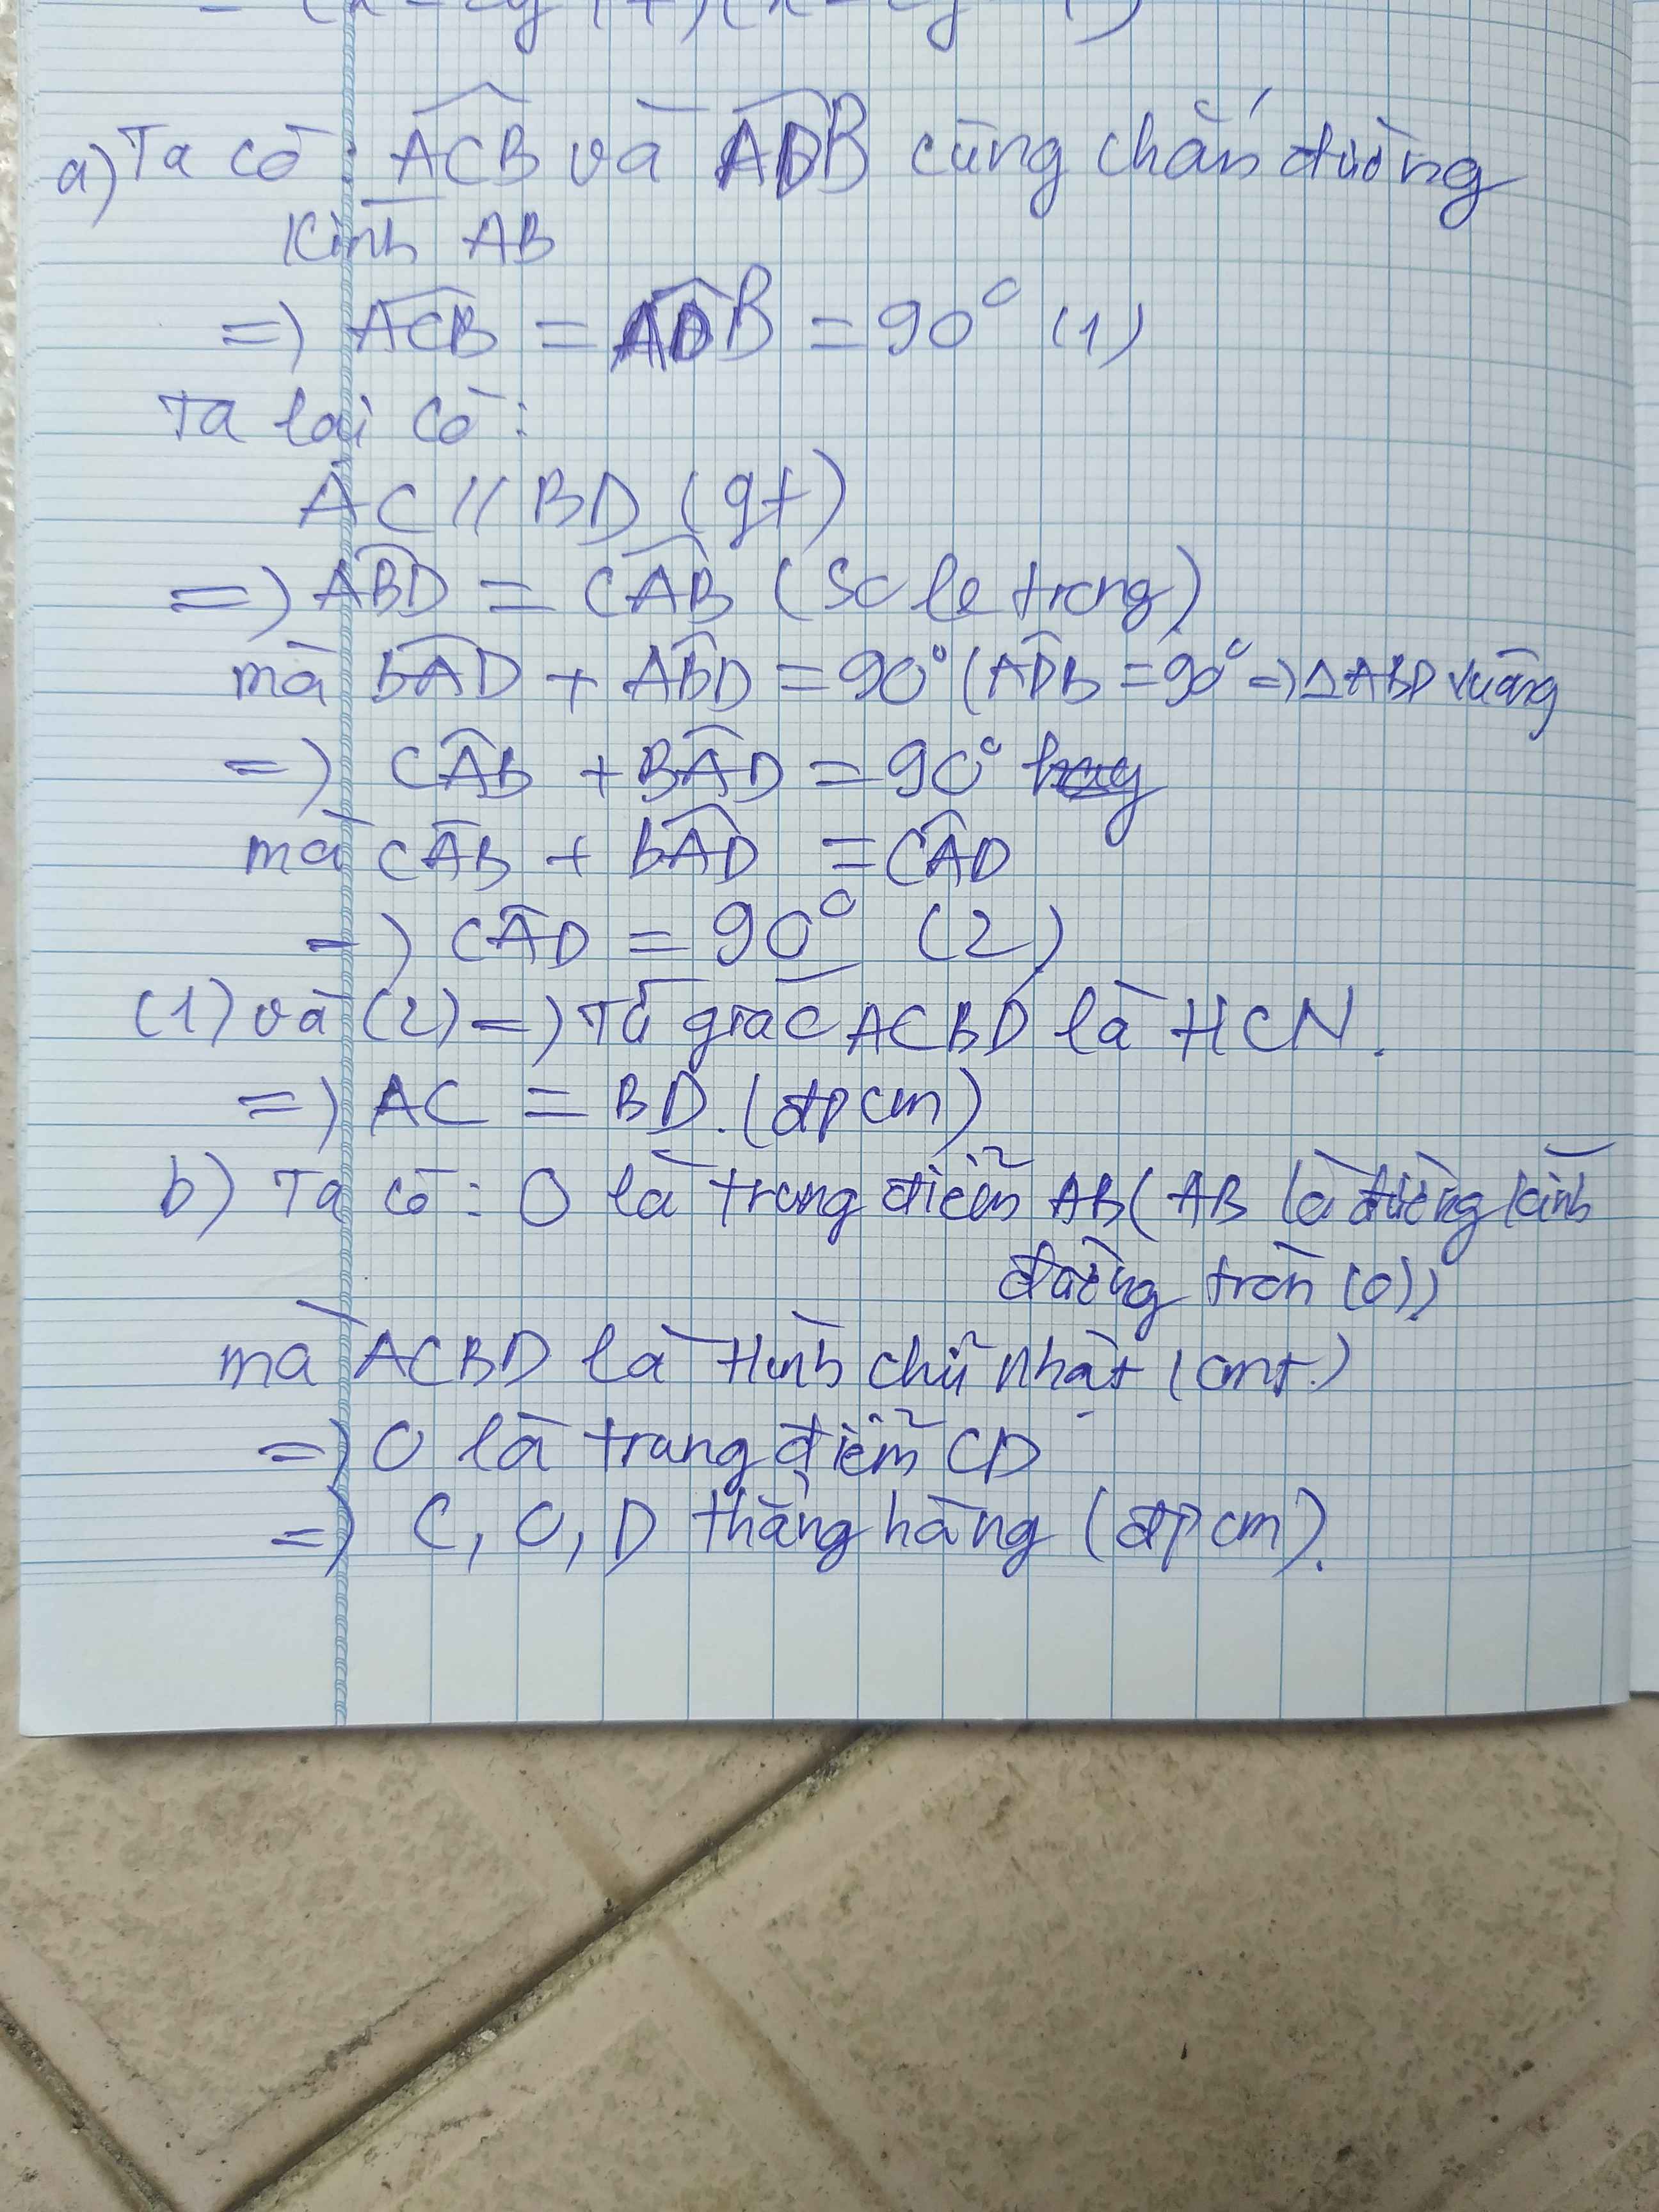 a) Ta có: ACB và ADB cùng chắn đường
kính AB
=) ACB = ADB = 90° (1)
Ta lại có:
AC // BD (gt)
=) ABD = CAB (so le trong)
mà BAD + ABD = 90° (ADB = 90° =) Δ ABD vuông
=) CAB + BAD = 90°
mà CAB + BAD = CAD
=) CAD = 90° (2)
(1) và (2) =) Tứ giác ACBD là HCN.
=) AC = BD. (đpcm)
b) Ta có: O là trung điểm AB (AB là đường kính
đường tròn (O))
mà ACBD là Hình chữ nhật (cmt)
=) O là trung điểm CD
=) C, O, D thẳng hàng (đpcm).